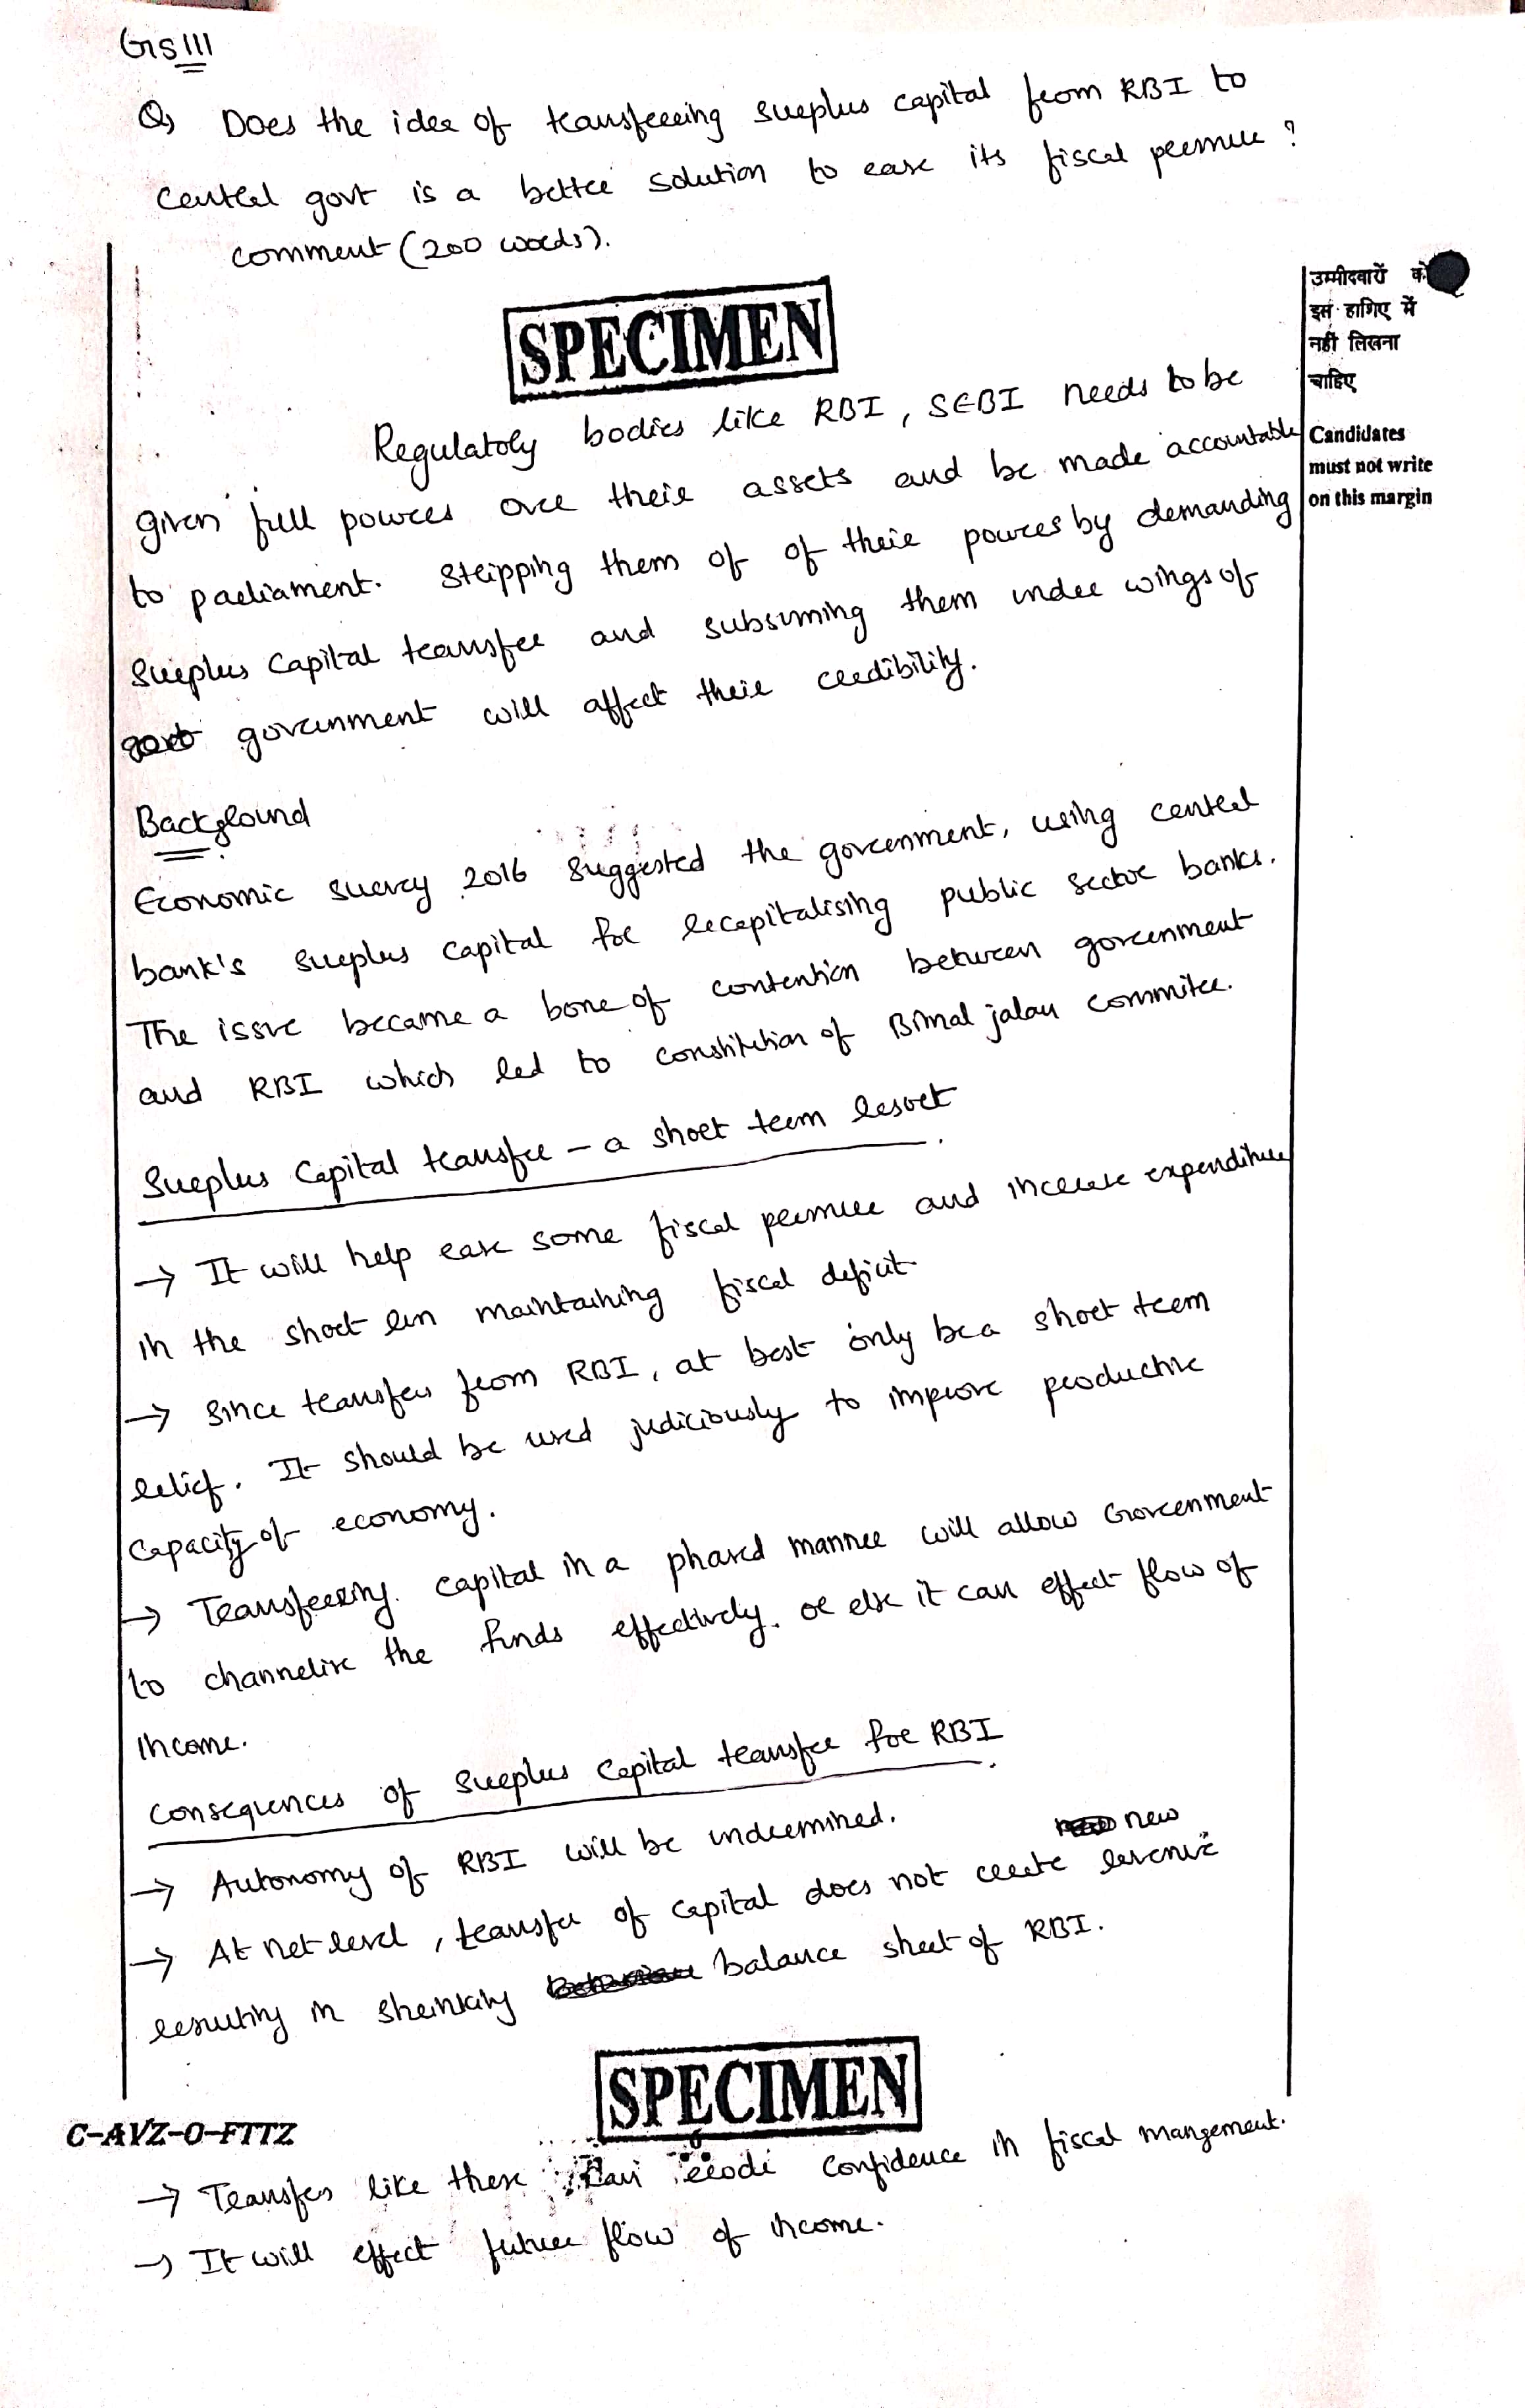 GS III
Q) Does the idea of transferring surplus capital from RBI to
central govt is a better solution to ease its fiscal pressure ?
comment (200 words).
SPECIMEN
उम्मीदवारों को
इस हाशिए में
नहीं लिखना
चाहिए
Candidates
must not write
on this margin
Regulatory bodies like RBI, SEBI needs to be
given full powers over their assets and be made accountable
to parliament. Stripping them of of their powers by demanding
Surplus Capital transfer and subsuming them under wings of
government will affect their credibility.
Background
Economic survey 2016 suggested the government, using central
bank's surplus capital for recapitalising public sector banks.
The issue became a bone of contention between government
and RBI which led to constitution of Bimal jalan commitee.
Surplus Capital transfer - a short term resort
→ It will help ease some fiscal pressure and increase expenditure
in the short run maintaining fiscal deficit.
→ Since transfers from RBI, at best only be a short term
relief. It should be used judiciously to improve productive
capacity of economy.
→ Transferring capital in a phased manner will allow Government
to channelise the funds effectively. or else it can effect flow of
income.
Consequences of Surplus Capital transfer for RBI
→ Autonomy of RBI will be undermined.
→ At net level, transfer of capital does not create new revenue
resulting in shrinking balance sheet of RBI.
SPECIMEN
C-AVZ-O-FTTZ
6
→ Transfers like these can erode confidence in fiscal mangement.
→ It will effect future flow of income.